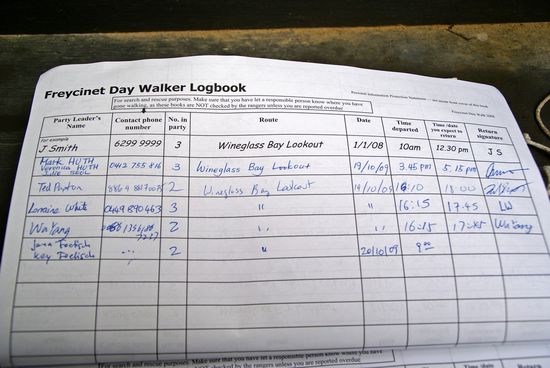 Freycinet Day Walker Logbook
Personal Information Protection Statement
For search and rescue purposes. Make sure that you have let a responsible person know where you have
gone walking, as these books are NOT checked by the rangers unless you are reported overdue
Freycinet Day Walk 2008
Party Leader's Name Contact phone number No. in party Route Date Time departed Time/day you expect to return Return signature
For example
J Smith 6299 9999 3 Wineglass Bay Lookout 1/1/08 10am 12.30 pm J S
Mark HUTH
Veronica HUTH
Julie SEOL 0412 755 816 3 Wineglass Bay Lookout 19/10/09 3.45 pm 5.15 pm
Ted 2 Wineglass Bay Lookout 19/10/09 16:10 18:00
Loraine White 0449 890463 3 " " 16:15 17.45 LW
Wa Yang 2 " " 16:15 17:45 Wa Yang
2 " 20/10/09 9 00
For search and rescue purposes. Make sure that you have let a responsible person know where you have
gone walking, as these books are NOT checked by the rangers unless you are reported overdue
Time Time/day Return